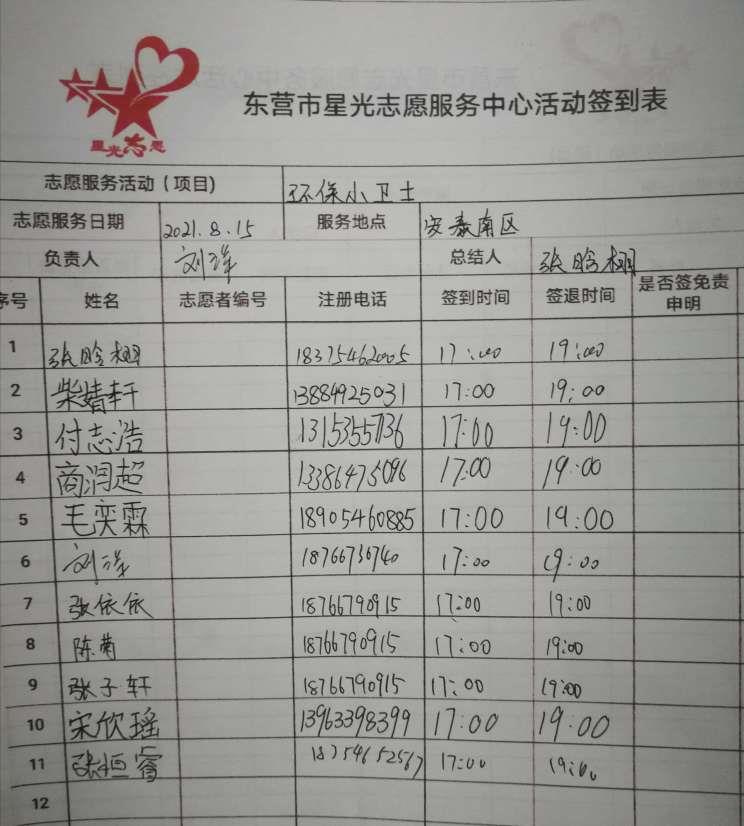 星光志愿
东营市星光志愿服务中心活动签到表
志愿服务活动(项目) 环保小卫士
志愿服务日期 2021.8.15 服务地点 安泰南区
负责人 刘 总结人 张晗栩
序号 姓名 志愿者编号 注册电话 签到时间 签退时间 是否签免责
申明
1 张晗栩 18375462005 17:00 19:00
2 柴婧轩 13884925031 17:00 19:00
3 付志浩 17:00 19:00
4 商润超 13386475096 17:00 19:00
5 毛奕霖 18905460885 17:00 19:00
6 刘 18766736740 17:00 19:00
7 张依依 18766790915 17:00 19:00
8 陈菊 18766790915 17:00 19:00
9 张子轩 18766790915 17:00 19:00
10 宋欣瑶 13963398399 17:00 19:00
11 张恒睿 18754652567 17:00 19:00
12